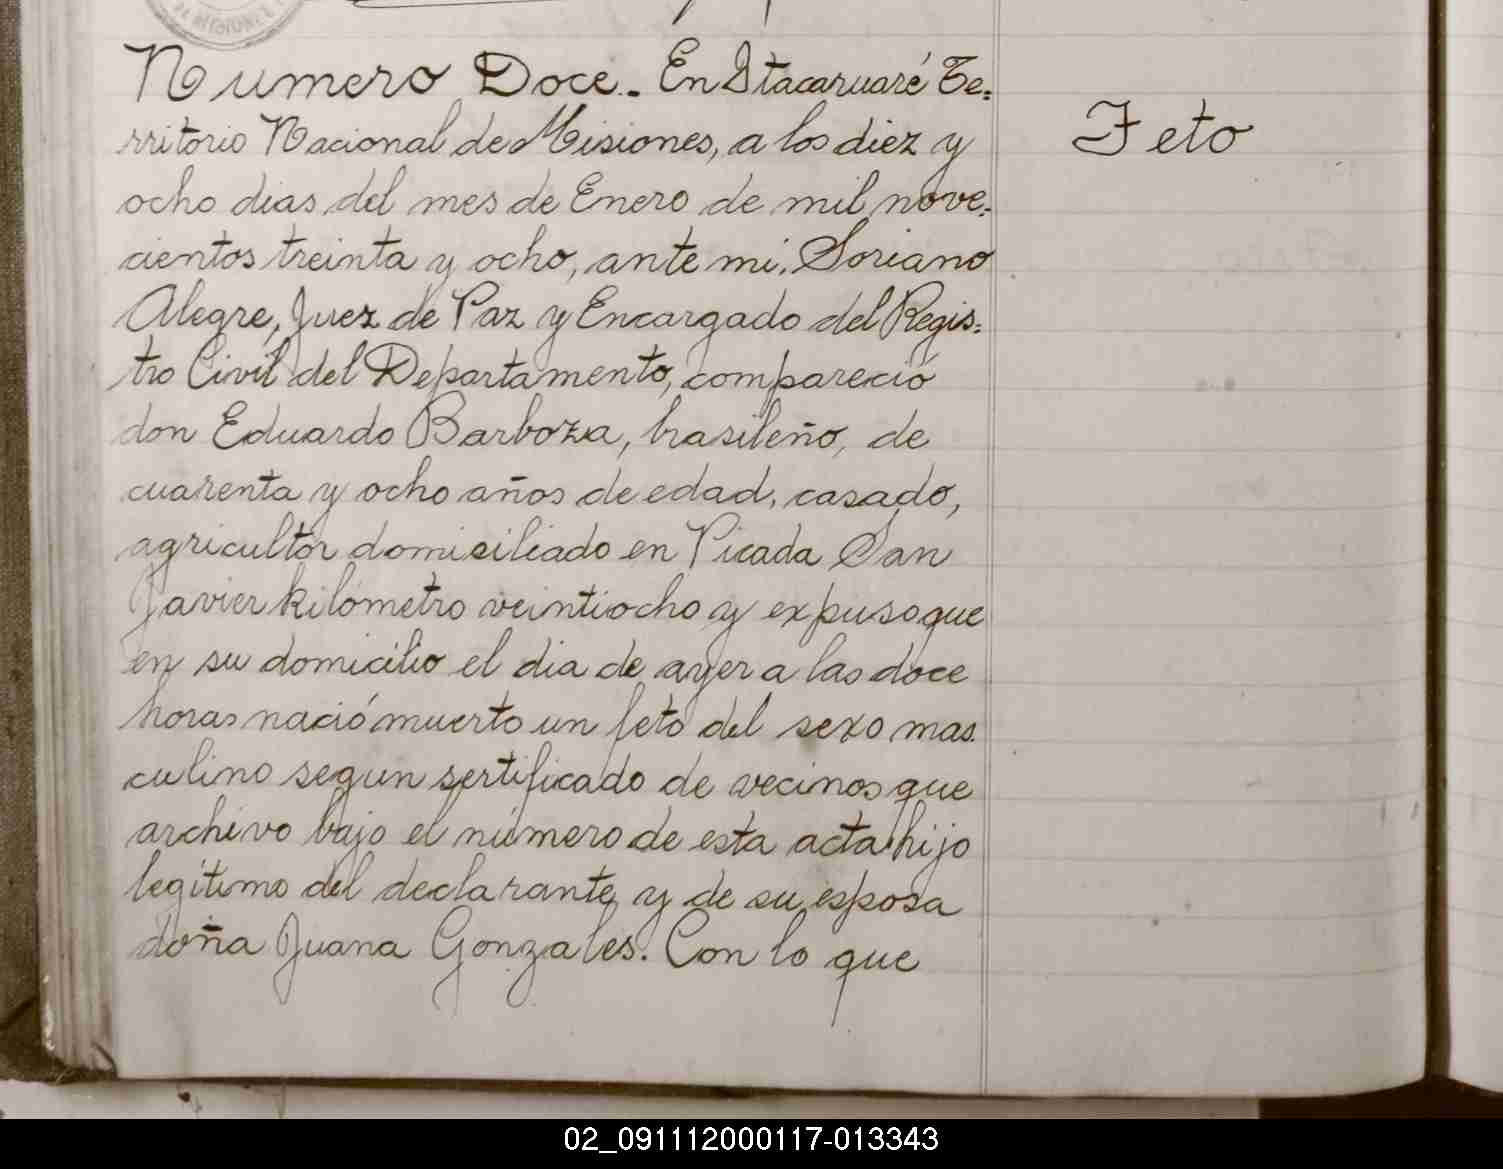 DE MISIONES
Numero Doce.- En Itacaruaré Te=
rritorio Nacional de Misiones, a los diez y
ocho dias del mes de Enero de mil nove=
cientos treinta y ocho, ante mi, Soriano
Alegre, Juez de Paz y Encargado del Regis=
tro Civil del Departamento, compareció
don Eduardo Barboza, brasileño, de
cuarenta y ocho años de edad, casado,
agricultor domisiliado en Picada San
Javier kilómetro veintiocho y expuso que
en su domicilio el dia de ayer a las doce
horas nació muerto un feto del sexo mas
culino segun sertificado de vecinos que
archivo bajo el número de esta acta hijo
legítimo del declarante y de su esposa
doña Juana Gonzales. Con lo que
Feto
02_091112000117-013343